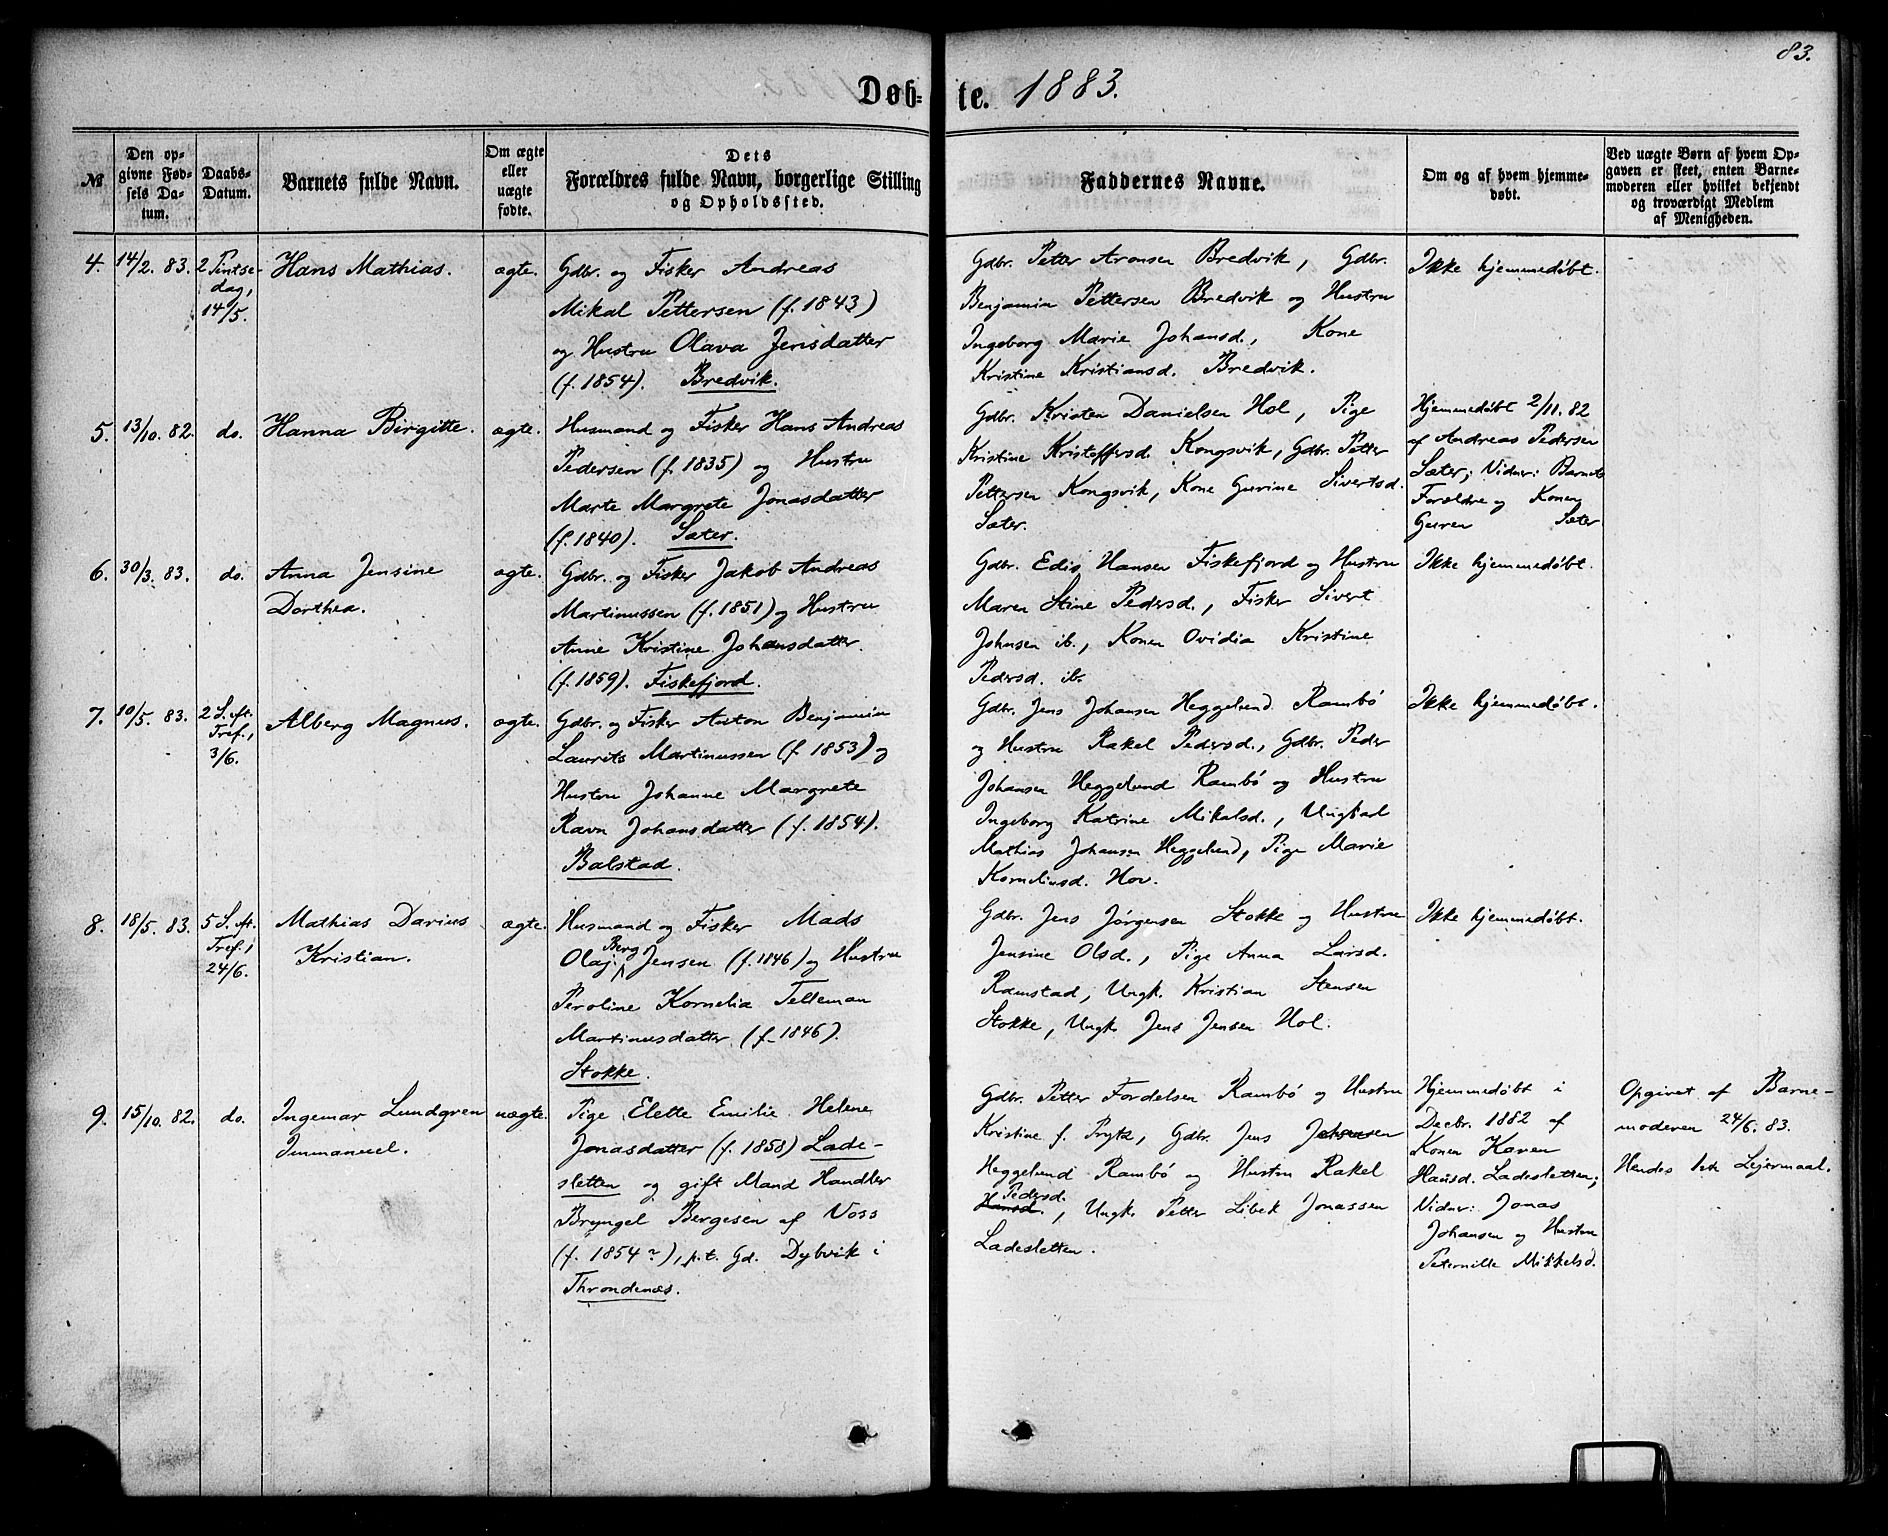 83.
Døb- te. 1883.
№
Den op-
givne Fød-
sels Da-
tum.
Daabs-
Datum.
Barnets fulde Navn.
Om ægte
eller
uægte
fødte.
Dets
Forældres fulde Navn, borgerlige Stilling
og Opholdssted.
Faddernes Navne.
Om og af hvem hjemme-
døbt.
Ved uægte Børn af hvem Op-
gaven er skeet, enten Barne-
moderen eller hvilket bekjendt
og troværdigt Medlem
af Menigheden.
4.
14/2. 83.
2 Pintse-
dag,
14/5.
Hans Mathias.
ægte.
Gdbr. og Fisker Andreas
Mikal Pettersen (f. 1843)
og Hustru Olava Jensdatter
(f. 1854). Bredvik.
Gdbr. Petter Aronsen Bredvik, Gdbr.
Benjamin Pettersen Bredvik og Hustru
Ingeborg Marie Johansd., Kone
Kristine Kristiansd. Bredvik.
Ikke hjemmedøbt.
5.
13/10. 82.
do.
Hanna Birgitte.
ægte.
Husmand og Fisker Hans Andreas
Pedersen (f. 1835) og Hustru
Marte Margrete Jonasdatter
(f. 1840). Sæter.
Gdbr. Kristen Danielsen Hol, Pige
Kristine Kristoffersd. Kongsvik, Gdbr. Petter
Pettersen Kongsvik, Kone Gurine Sivertsd.
Sæter.
Hjemmedøbt 2/11. 82
af Andreas Pedersen
Sæter; Vidner: Barnets
Forældre og Konen
Guren Sæter
6.
30/3. 83.
do.
Anna Jensine
Dorthea.
ægte.
Gdbr. og Fisker Jakob Andreas
Martinussen (f. 1851) og Hustru
Anne Kristine Johansdatter.
(f. 1859). Fiskefjord.
Gdbr. Edis Hansen Fiskefjord og Hustru
Maren Stine Pedersd., Fisker Sivert
Johnsen ib., Konen Ovidia Kristine
Pedersd. ib.
Ikke hjemmedøbt.
7.
10/5. 83.
2 S. eft.
Tref.,
3/6.
Alberg Magnus.
ægte.
Gdbr. og Fisker Anton Benjamin
Laurits Martinussen (f. 1853) og
Hustru Johanne Margrete
Ravn Johansdatter (f. 1854).
Balstad.
Gdbr. Jens Johansen Heggelund Rambø
og Hustru Rakel Pedersd., Gdbr. Peder
Johansen Heggelund Rambø og Hustru
Ingeborg Katrine Mikalsd., Ungkarl
Mathias Johansen Heggelund, Pige Marie
Korneliusd. Hov.
Ikke hjemmedøbt.
8.
18/5. 83.
5 S. eft.
Tref.,
24/6.
Mathias Darius
Kristian.
ægte.
Husmand og Fisker Mads
Olaj Berg Jensen (f. 1846) og Hustru
Peroline Kornelia Telleman
Martinusdatter (f. 1846).
Stokke.
Gdbr. Jens Jørgensen Stokke og Hustru
Jensine Olsd., Pige Anna Larsd.
Ramstad, Ungk. Kristian Stensen
Stokke, Ungk. Jens Jensen Hol.
Ikke hjemmedøbt.
9.
15/10. 82.
do.
Ingemar Lundgren
Immanuel.
uægte.
Pige Elette Emilie Helene
Jonasdatter (f. 1858) Lade-
sletten og gift Mand Handler
Bryngel Bergesen af Voss
(f. 1854?), p.t. Gd. Dybvik i
Throndenæs.
Gdbr. Petter Fordelsen Rambø og Hustru
Kristine f. Prytz, Gdbr. Jens Johansen
Heggelund Rambø og Hustru Rakel
Pedersd.
Hansd., Ungk. Petter Libek Jonassen
Ladesletten.
Hjemmedøbt i
Decbr. 1882 af
Konen Karen
Hansd. Ladesletten;
Vidner: Jonas
Johansen og Hustru
Peternille Mikkelsd.
Opgivet af Barne-
moderen 24/6. 83.
Hendes 1ste Lejermaal.